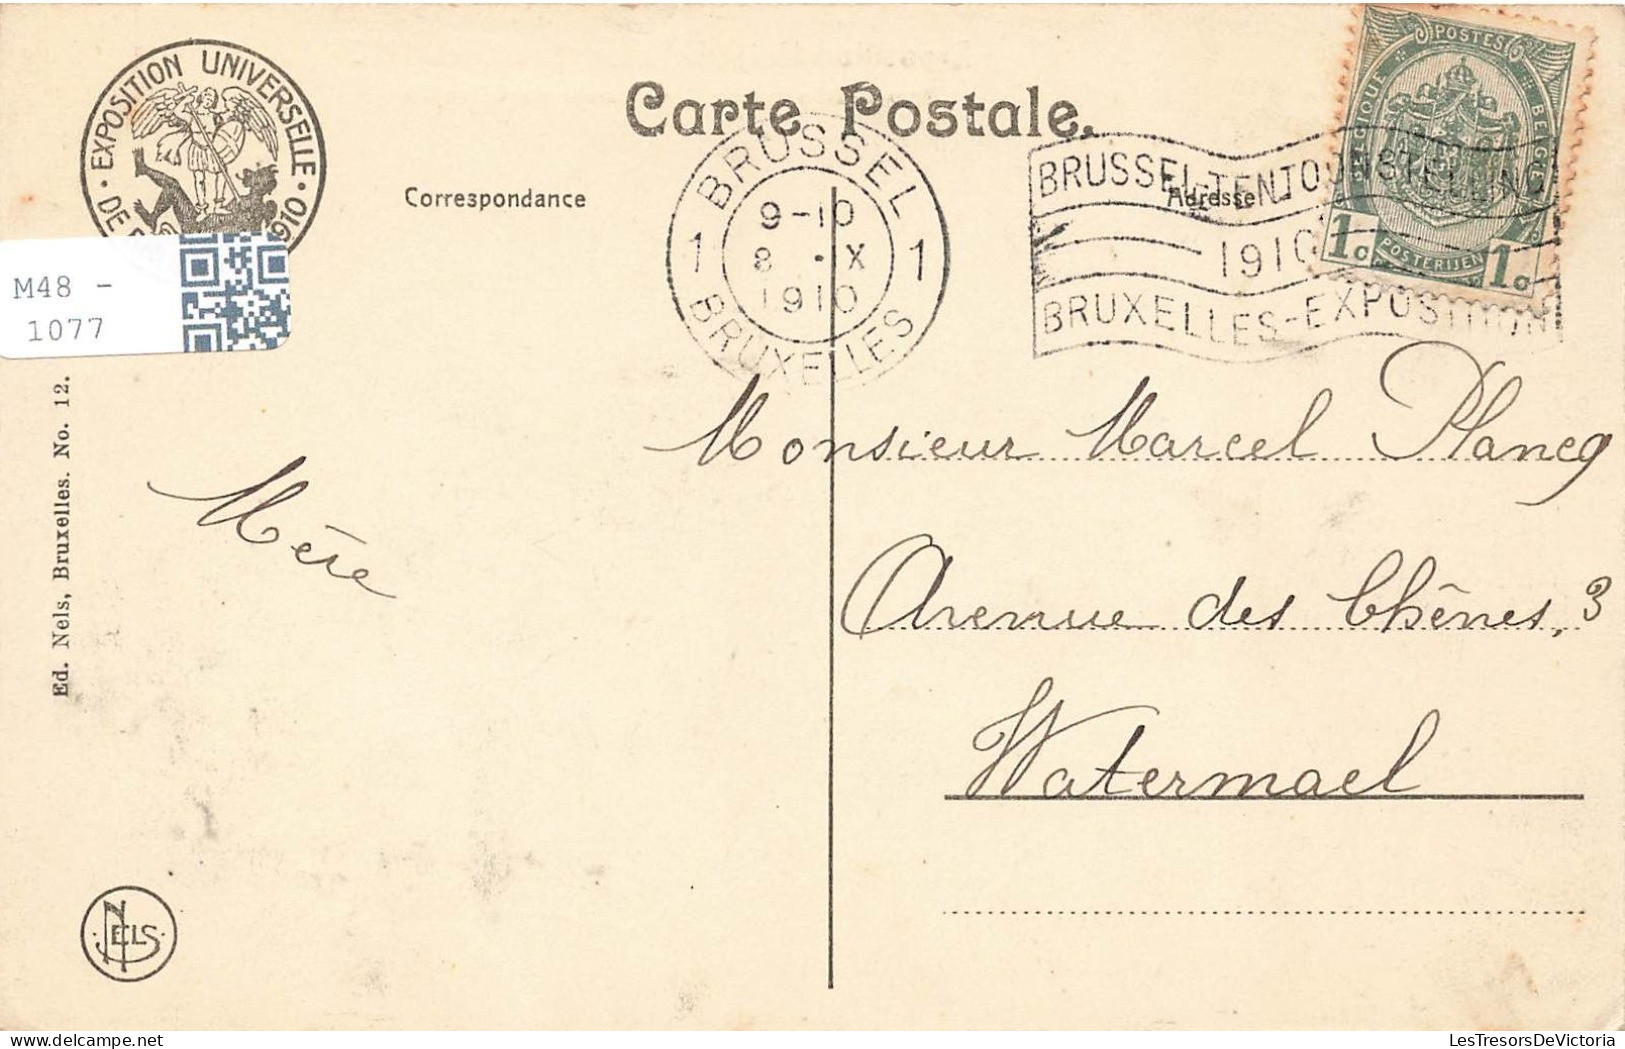 EXPOSITION UNIVERSELLE
DE
1910
M48 -
1077
Carte Postale.
Correspondance
Adresse
BRUSSEL
1 1
9-10
8 • X
1910
BRUXELLES
BRUSSEL-TENTOONSTELLING
1910
BRUXELLES-EXPOSITION
POSTES
BELGIQUE
BELGIË
POSTERIJEN
1c 1c
Monsieur Marcel Plancq
Avenue des Chênes, 3
Watermael
Mère
Ed. Nels, Bruxelles. No. 12.
NELS
LesTresorsDeVictoria